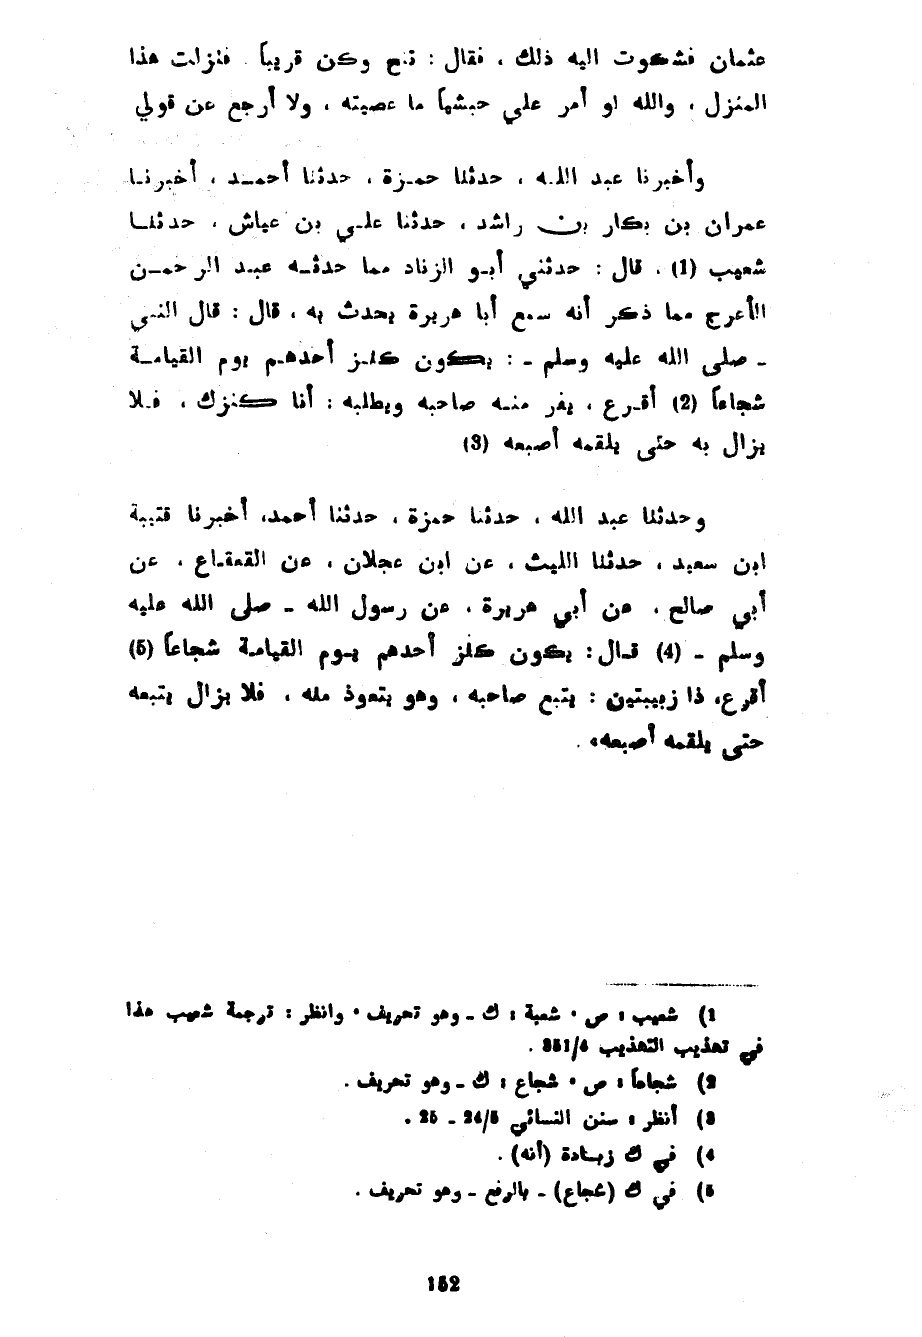 عثمان فشكوت اليه ذلك ، فقال : تنح وكن قريباً . فنزلت هذا
المنزل ، والله لو أمر علي حبشياً ما عصيته ، ولا أرجع عن قولي
وأخبرنا عبد الله ، حدثنا حمزة ، حدثنا أحمد ، أخبرنا
عمران بن بكار بن راشد ، حدثنا علي بن عياش ، حدثنا
شعيب (1) ، قال : حدثني أبو الزناد مما حدثه عبد الرحمن
الأعرج مما ذكر أنه سمع أبا هريرة يحدث به ، قال : قال النبي
- صلى الله عليه وسلم - : يكون كنز أحدهم يوم القيامة
شجاعاً (2) أقرع ، يفر منه صاحبه ويطلبه : أنا كنزك ، فلا
يزال به حتى يلقمه أصبعه (3)
وحدثنا عبد الله ، حدثنا حمزة ، حدثنا أحمد، أخبرنا قتيبة
ابن سعيد ، حدثنا الليث ، عن ابن عجلان ، عن القعقاع ، عن
أبي صالح ، عن أبي هريرة ، عن رسول الله - صلى الله عليه
وسلم - (4) قال : يكون كنز أحدهم يوم القيامة شجاعاً (5)
أقرع، ذا زبيبتين : يتبع صاحبه ، وهو يتعوذ منه ، فلا يزال يتبعه
حتى يلقمه أصبعه» .
1) شعيب : ص ، شعبة : ك - وهو تحريف ، وانظر : ترجمة شعيب هذا
في تهذيب التهذيب 351/4 .
2) شجاعاً : ص ، شجاع : ك - وهو تحريف .
3) أنظر : سنن النسائي 24/5 - 25 .
4) في ك زيادة (أنه) .
5) في ك (شجاع) - بالرفع - وهو تحريف .
152